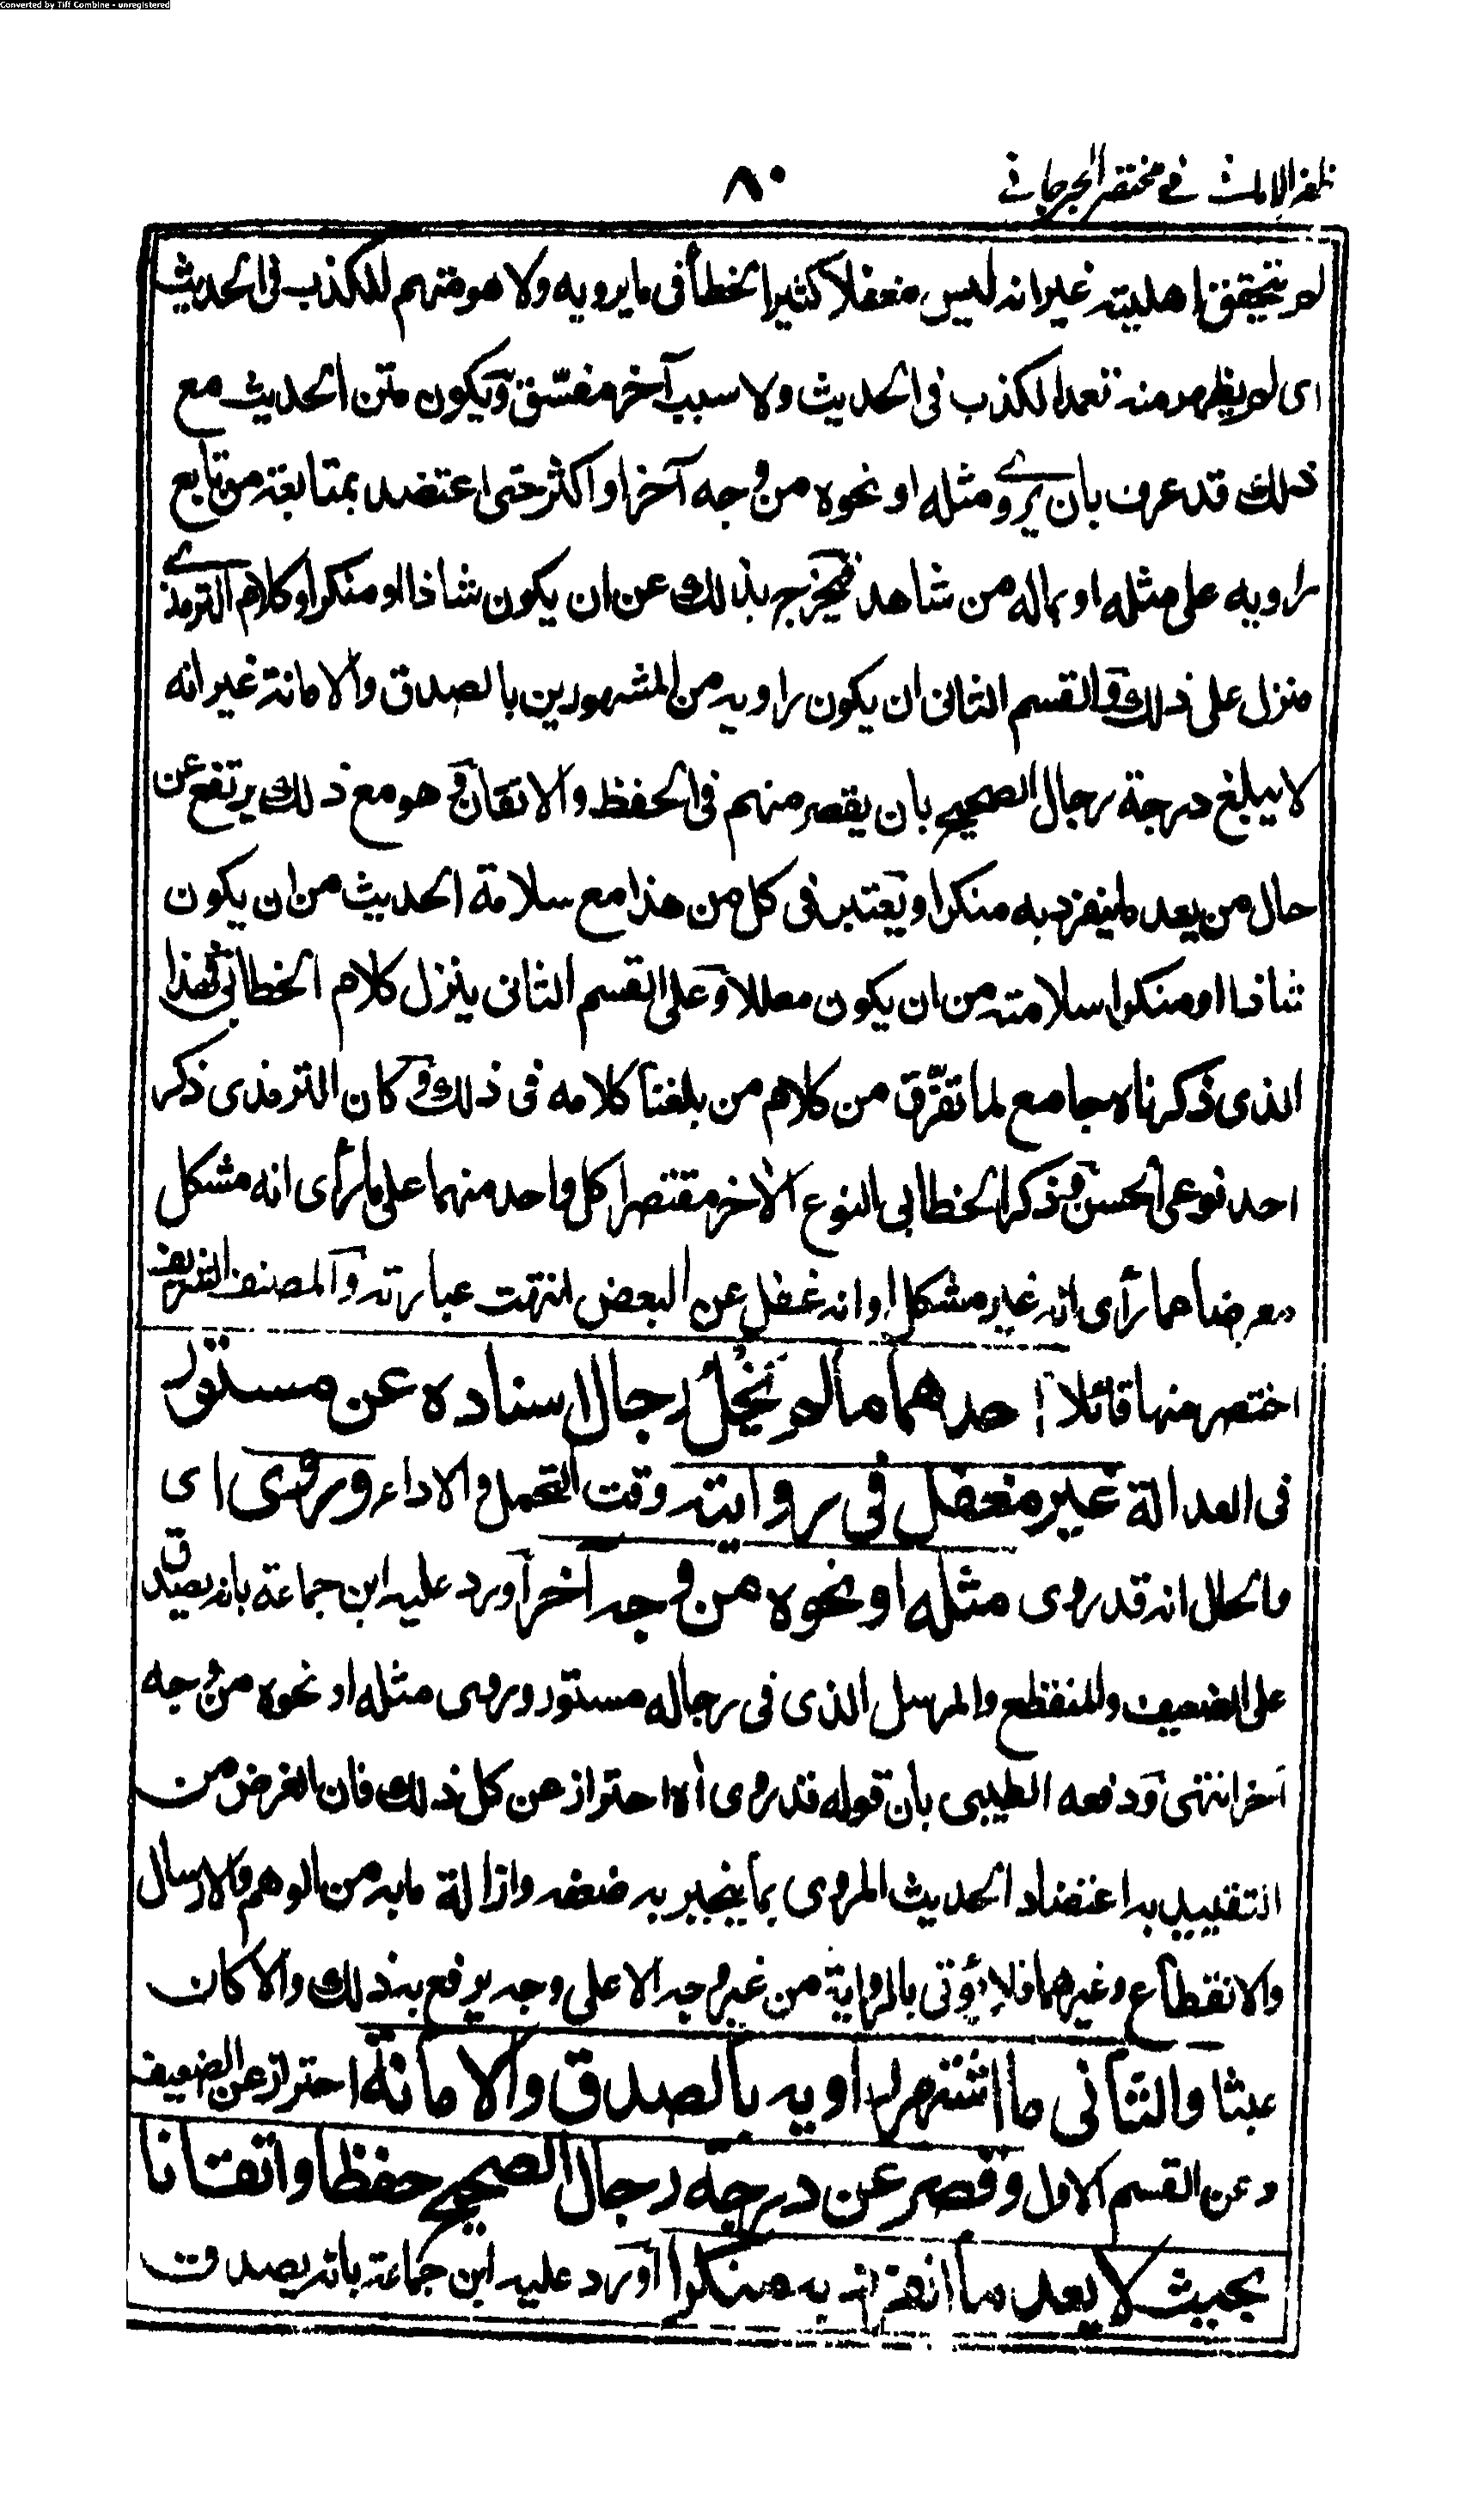 Converted by Tiff Combine - unregistered
ظفر الامانی فی مختصر الجرجانی
۸۰
لم يتحقق اهليته غير انه ليس مغفلا كثير الخطأ فى ما يرويه ولا هو متهم للكذب فى الحديث
اى لم يظهر منه تعمد الكذب فى الحديث ولا سبب آخر مفسّق ويكون متن الحديث مع
ذلك قد عرف بان يروى مثله او نحوه من وجه آخر او اكثر حتى اعتضد بمتابعة من تابع
راويه على مثله او بماله من شاهد فيخرج بذلك عن ان يكون شاذا او منكرا وكلام الترمذى
منزل على ذلك والقسم الثانى ان يكون راويه من المشهورين بالصدق والامانة غير انه
لا يبلغ درجة رجال الصحيح بان يقصر منهم فى الحفظ والاتقان وهو مع ذلك يرتفع عن
حال من يعد ما ينفرد به منكرا ويعتبر فى كل من هذا مع سلامة الحديث من ان يكون
شاذا او منكرا سلامته من ان يكون معللا وعلى القسم الثانى ينزل كلام الخطابى فهذا
الذى ذكرناه جامع لما تفرّق من كلام من بلغنا كلامه فى ذلك وكان الترمذى ذكر
احد نوعى الحسن وذكر الخطابى النوع الآخر مقتصرا كل واحد منهما على ما رأى انه مشكل
معرضا عما رأى انه غير مشكل او انه غفل عن البعض انتهت عبارته والمصنف الشريف
اختصر منها قائلا احدهما ما لم يخل رجال اسناده عن مستور
فى العدالة غير مغفل فى روايته وقت التحمل والاداء وروى اى
والحال انه قد روى مثله او نحوه من وجه آخر اورد عليه ابن جماعة بانه يصدق
على الضعيف والمنقطع والمرسل الذى فى رجاله مستور وروى مثله او نحوه من وجه
آخر انتهى ودفعه الطيبى بان قوله قد روى اه احتراز عن كل ذلك فان الغرض من
التقييد به اعتضاد الحديث المروى بما ينجبر به ضعفه وازالة ما به من الوهم والارسال
والانقطاع وغيرهما فلا يؤتى بالرواية من غير وجه الا على وجه يرفع بذلك والا كان
عبثا والثانى ما اشتهر راويه بالصدق والامانة احتراز عن الضعيف
وعن القسم الاول وقصر عن درجة رجال الصحيح حفظا واتقانا
بحيث لا يعد ما انفرد به منكرا اورد عليه ابن جماعة بانه يصدق